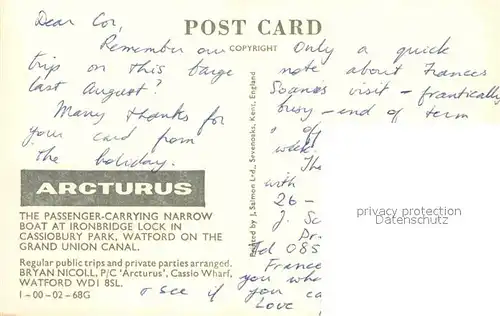 POST CARD
COPYRIGHT
Dear Cor,
Remember our
trip on this barge
last August?
Many thanks for
your card from
the holiday.
ARCTURUS
THE PASSENGER-CARRYING NARROW
BOAT AT IRONBRIDGE LOCK IN
CASSIOBURY PARK, WATFORD ON THE
GRAND UNION CANAL.
Regular public trips and private parties arranged.
BRYAN NICOLL, P/C 'Arcturus', Cassio Wharf,
WATFORD WD1 8SL.
1-00-02-68G
Printed by J. Salmon Ltd., Sevenoaks, Kent, England
Only a quick
note about Frances
visit - frantically
busy - end of term
of
week.
The
with
26 -
J. Sc
Dr.
Tel 085
France
you wha
& see if you ca
Love
privacy protection
Datenschutz